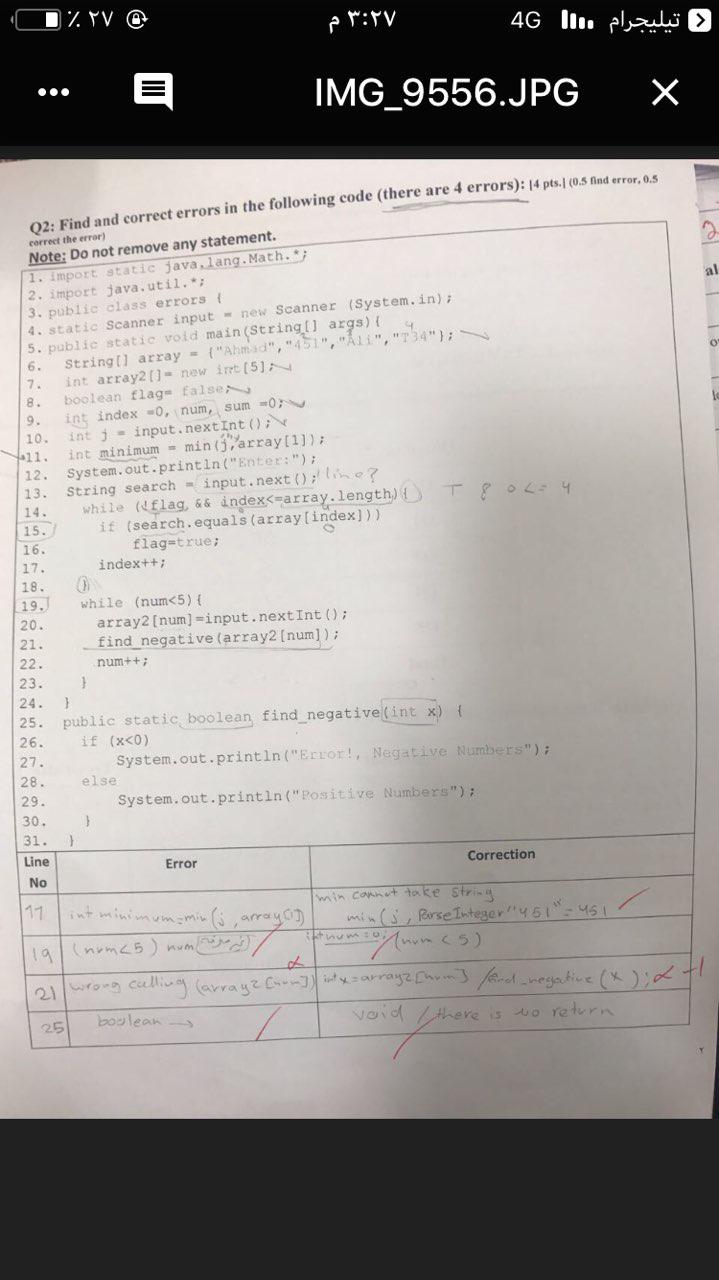 ٪ ٢٧ ٣:٢٧ م 4G تيليجرام
IMG_9556.JPG
Q2: Find and correct errors in the following code (there are 4 errors): [4 pts.] (0.5 find error, 0.5
correct the error)
Note: Do not remove any statement.
1. import static java.lang.Math.*;
2. import java.util.*;
3. public class errors {
4. static Scanner input = new Scanner (System.in);
5. public static void main(String[] args){
6. String[] array = {"Ahmad","451","Ali","T34"};
7. int array2[]= new int[5];
8. boolean flag= false;
9. int index =0, num, sum =0;
10. int j = input.nextInt();
11. int minimum = min(j,array[1]);
12. System.out.println("Enter:");
13. String search = input.next(); line?
14. while (!flag && index<=array.length){ T & 0 <= 4
15. if (search.equals(array[index]))
16. flag=true;
17. index++;
18. }
19. while (num<5){
20. array2[num]=input.nextInt();
21. find_negative(array2[num]);
22. num++;
23. }
24. }
25. public static boolean find_negative(int x) {
26. if (x<0)
27. System.out.println("Error!, Negative Numbers");
28. else
29. System.out.println("Positive Numbers");
30. }
31. }
Line No Error Correction
11 int minimum=min(j,array[1]) min cannot take String
min(j, ParseInteger"451"=451
19 (num<5) num int num=0; (num<5)
21 wrong calling (array2[num]) int x=array2[num] / find_negative(x); -1
25 boolean → void / there is no return
٢